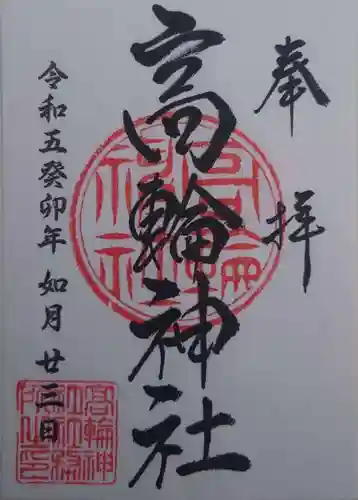 奉拝
高輪神社
令和五癸卯年 如月 廿三日
高輪神社